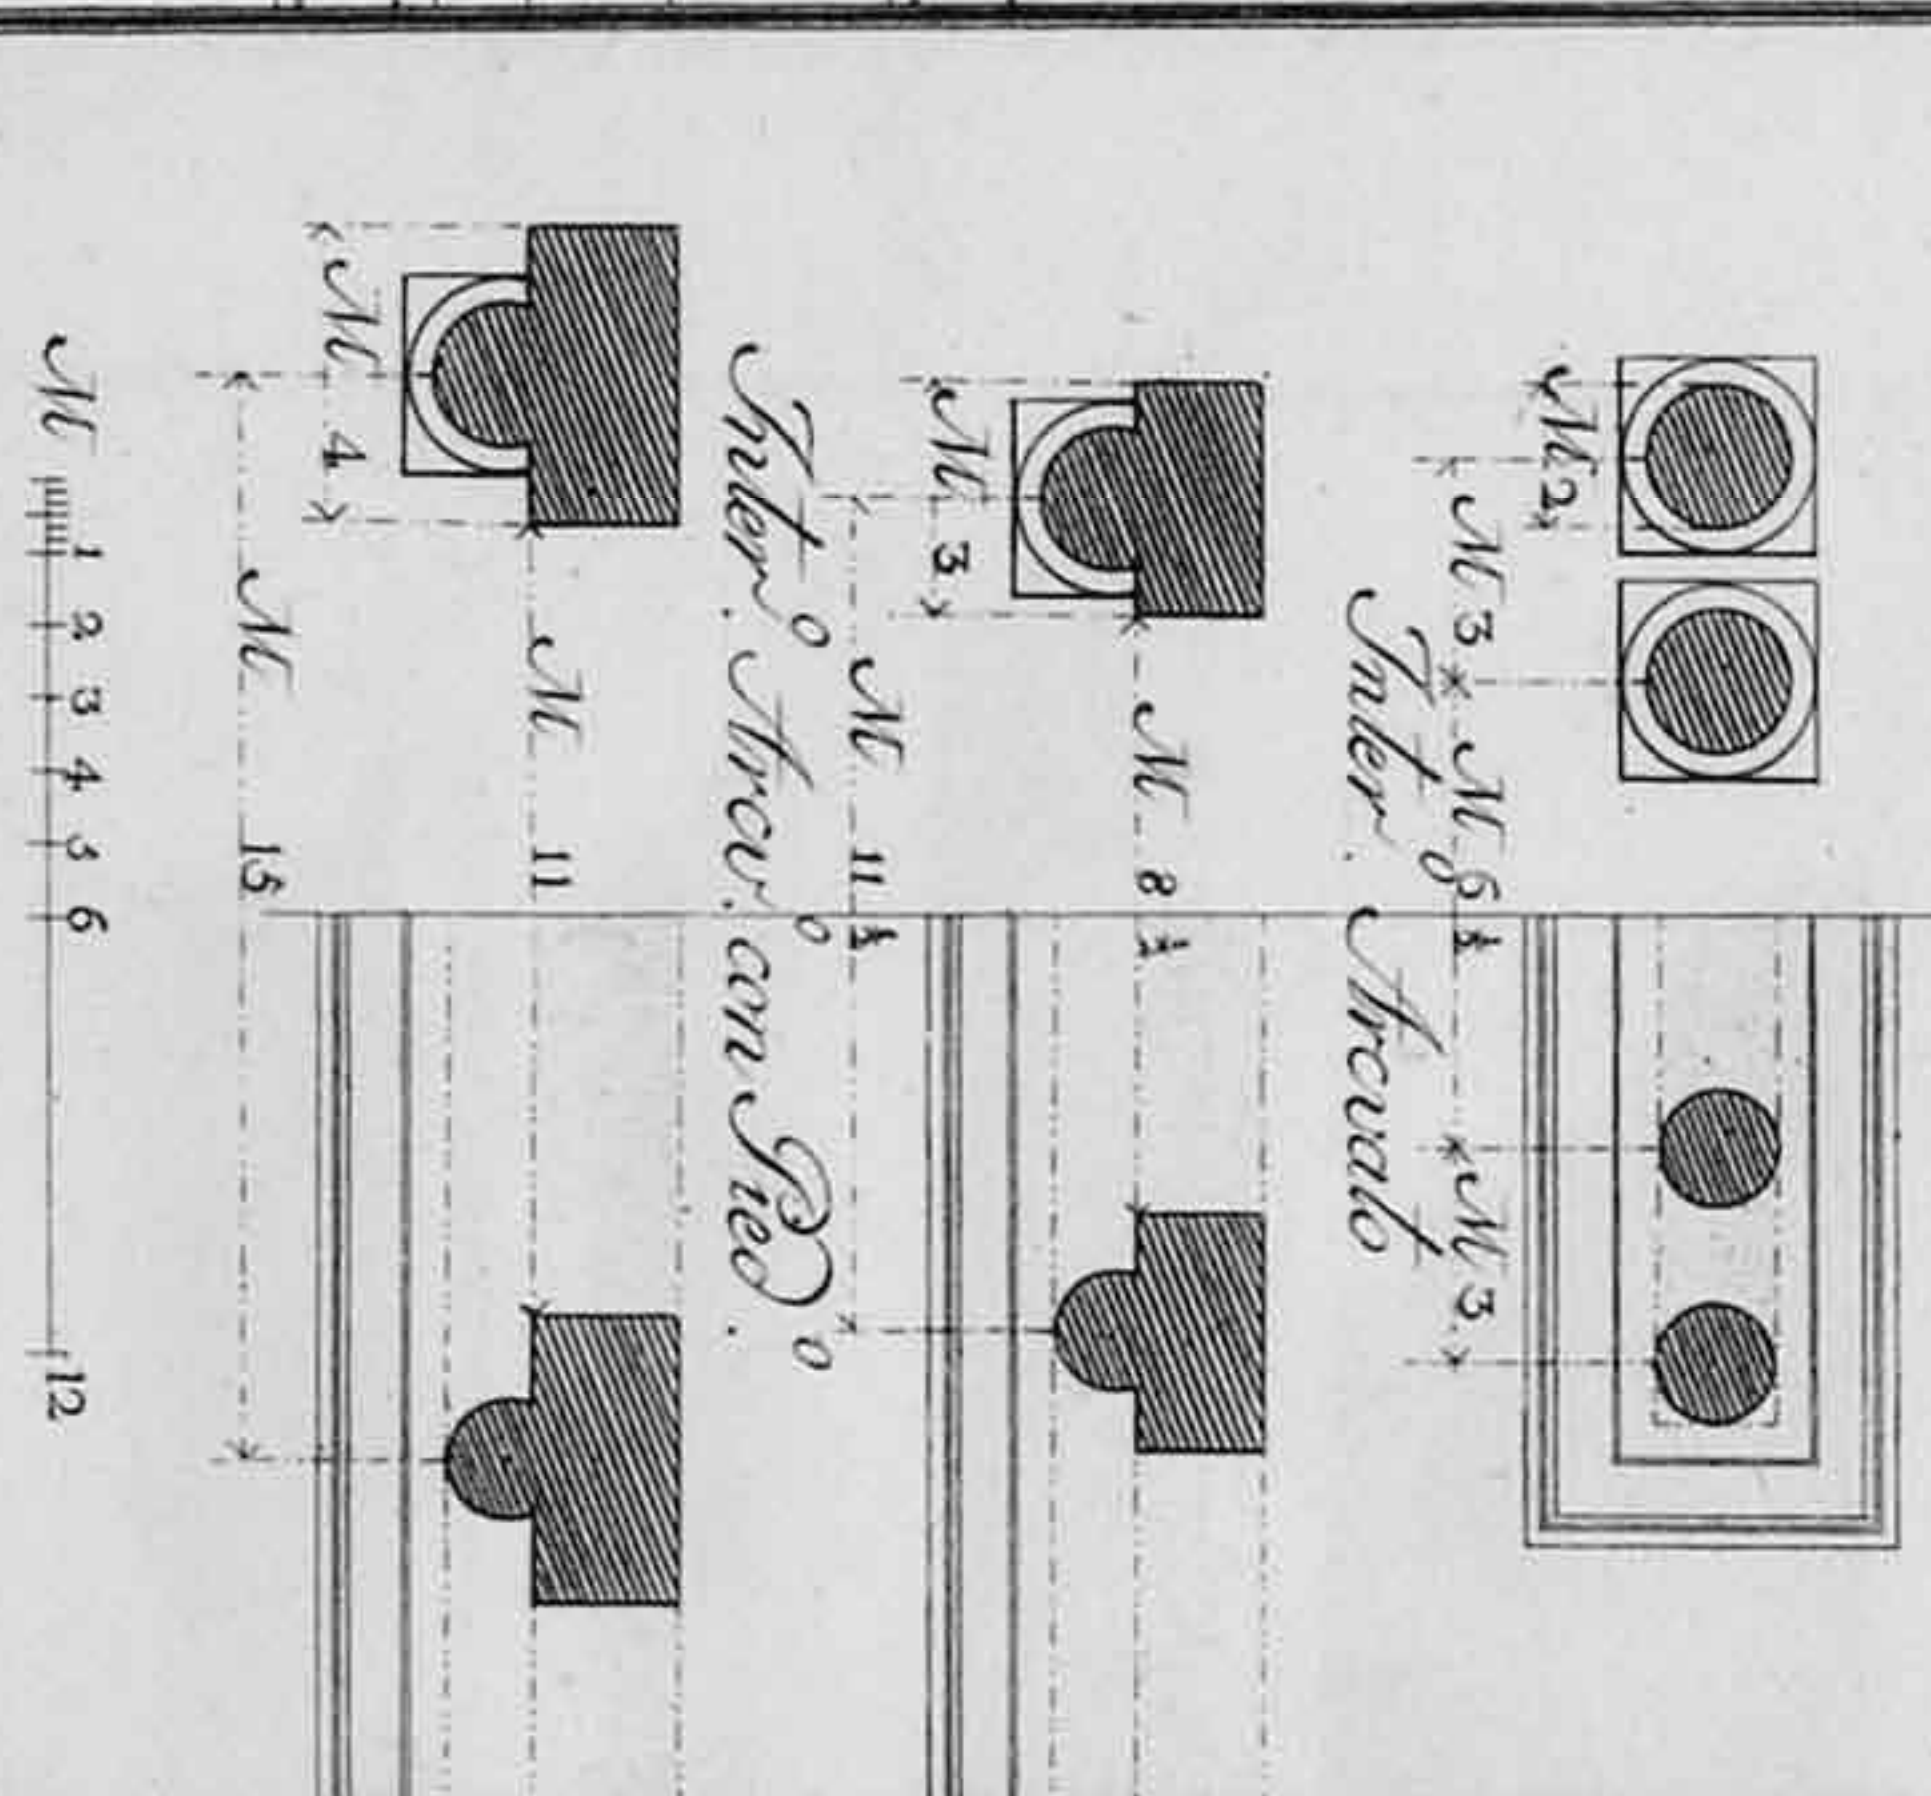 M 2
M 3 M 6 ½ M 3
Inter.º Arcato
M 3 M 8 ½
M 11 ½
Inter.º Arcu.º con Pied.º
M 4 M 11
M 15
M 1 2 3 4 5 6 12